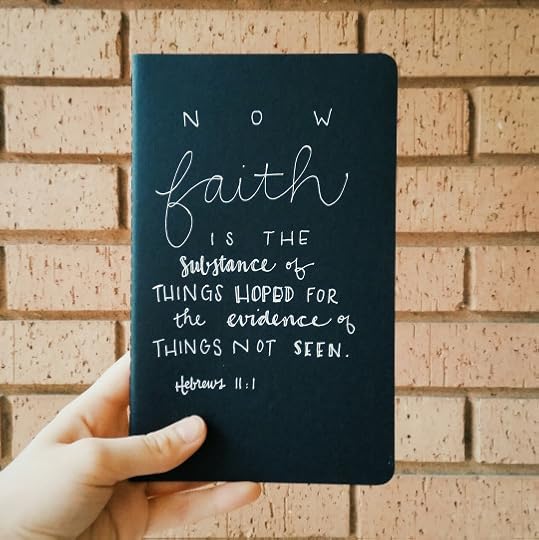 NOW
faith
IS THE
substance of
THINGS HOPED FOR
the evidence of
THINGS NOT SEEN.
Hebrews 11:1